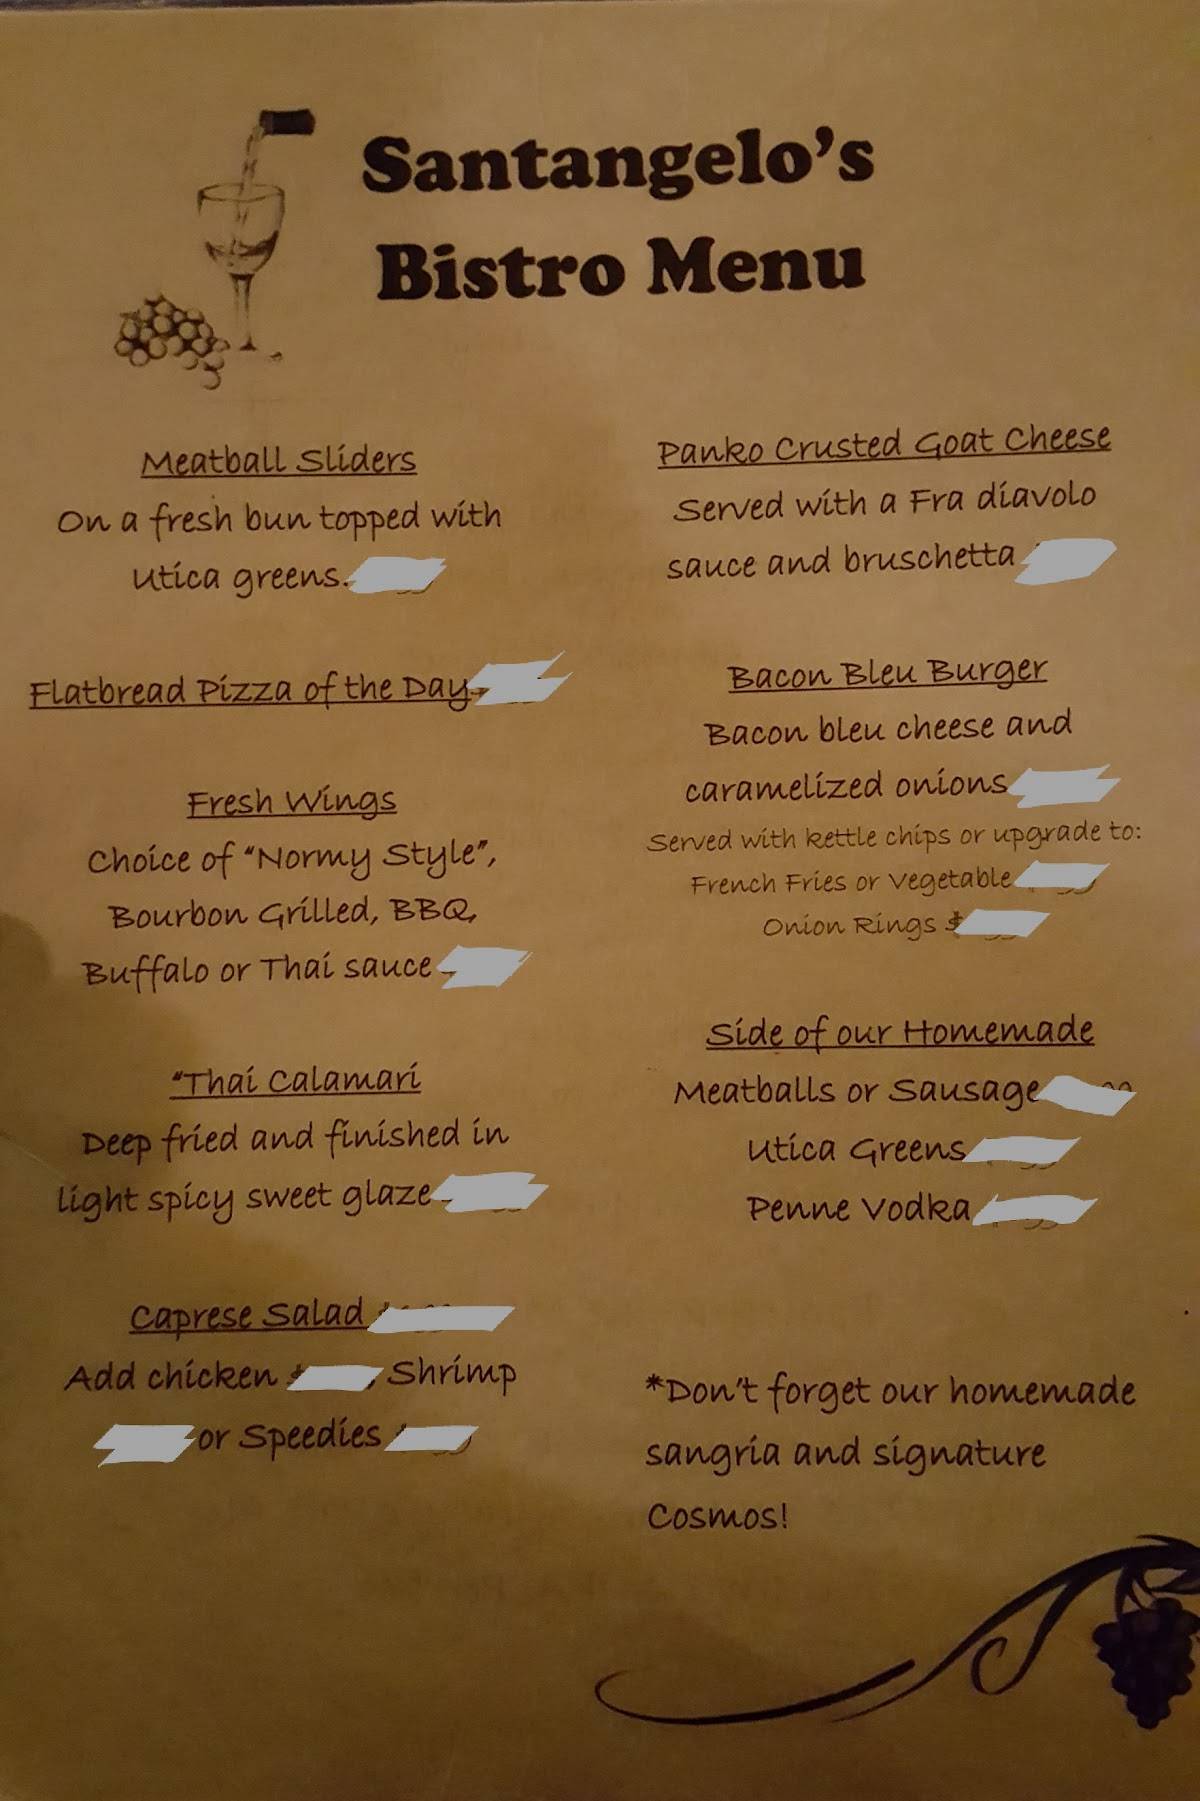 Santangelo's
Bistro Menu
Meatball Sliders
On a fresh bun topped with
Utica greens.
Flatbread Pizza of the Day
Fresh Wings
Choice of "Normy Style",
Bourbon Grilled, BBQ,
Buffalo or Thai sauce
"Thai Calamari
Deep fried and finished in
light spicy sweet glaze
Caprese Salad
Add chicken $ , Shrimp
or Speedies
Panko Crusted Goat Cheese
Served with a Fra diavolo
sauce and bruschetta
Bacon Bleu Burger
Bacon bleu cheese and
caramelized onions
Served with kettle chips or upgrade to:
French Fries or Vegetable
Onion Rings $
Side of our Homemade
Meatballs or Sausage
Utica Greens
Penne Vodka
*Don't forget our homemade
sangria and signature
Cosmos!